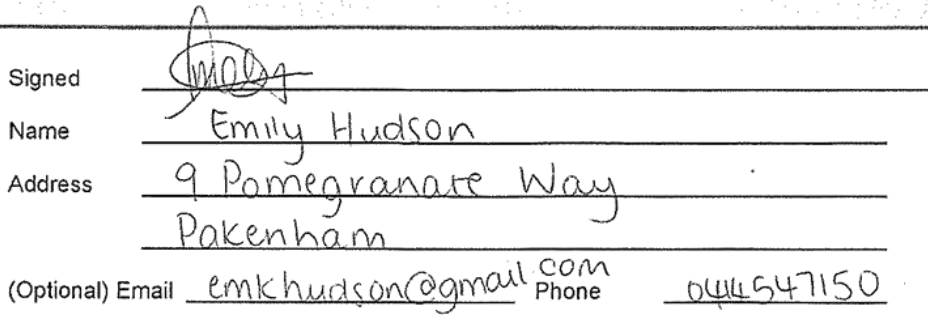 Signed
Name Emily Hudson
Address 9 Pomegranate Way
Pakenham
(Optional) Email emkhudson@gmail.com Phone